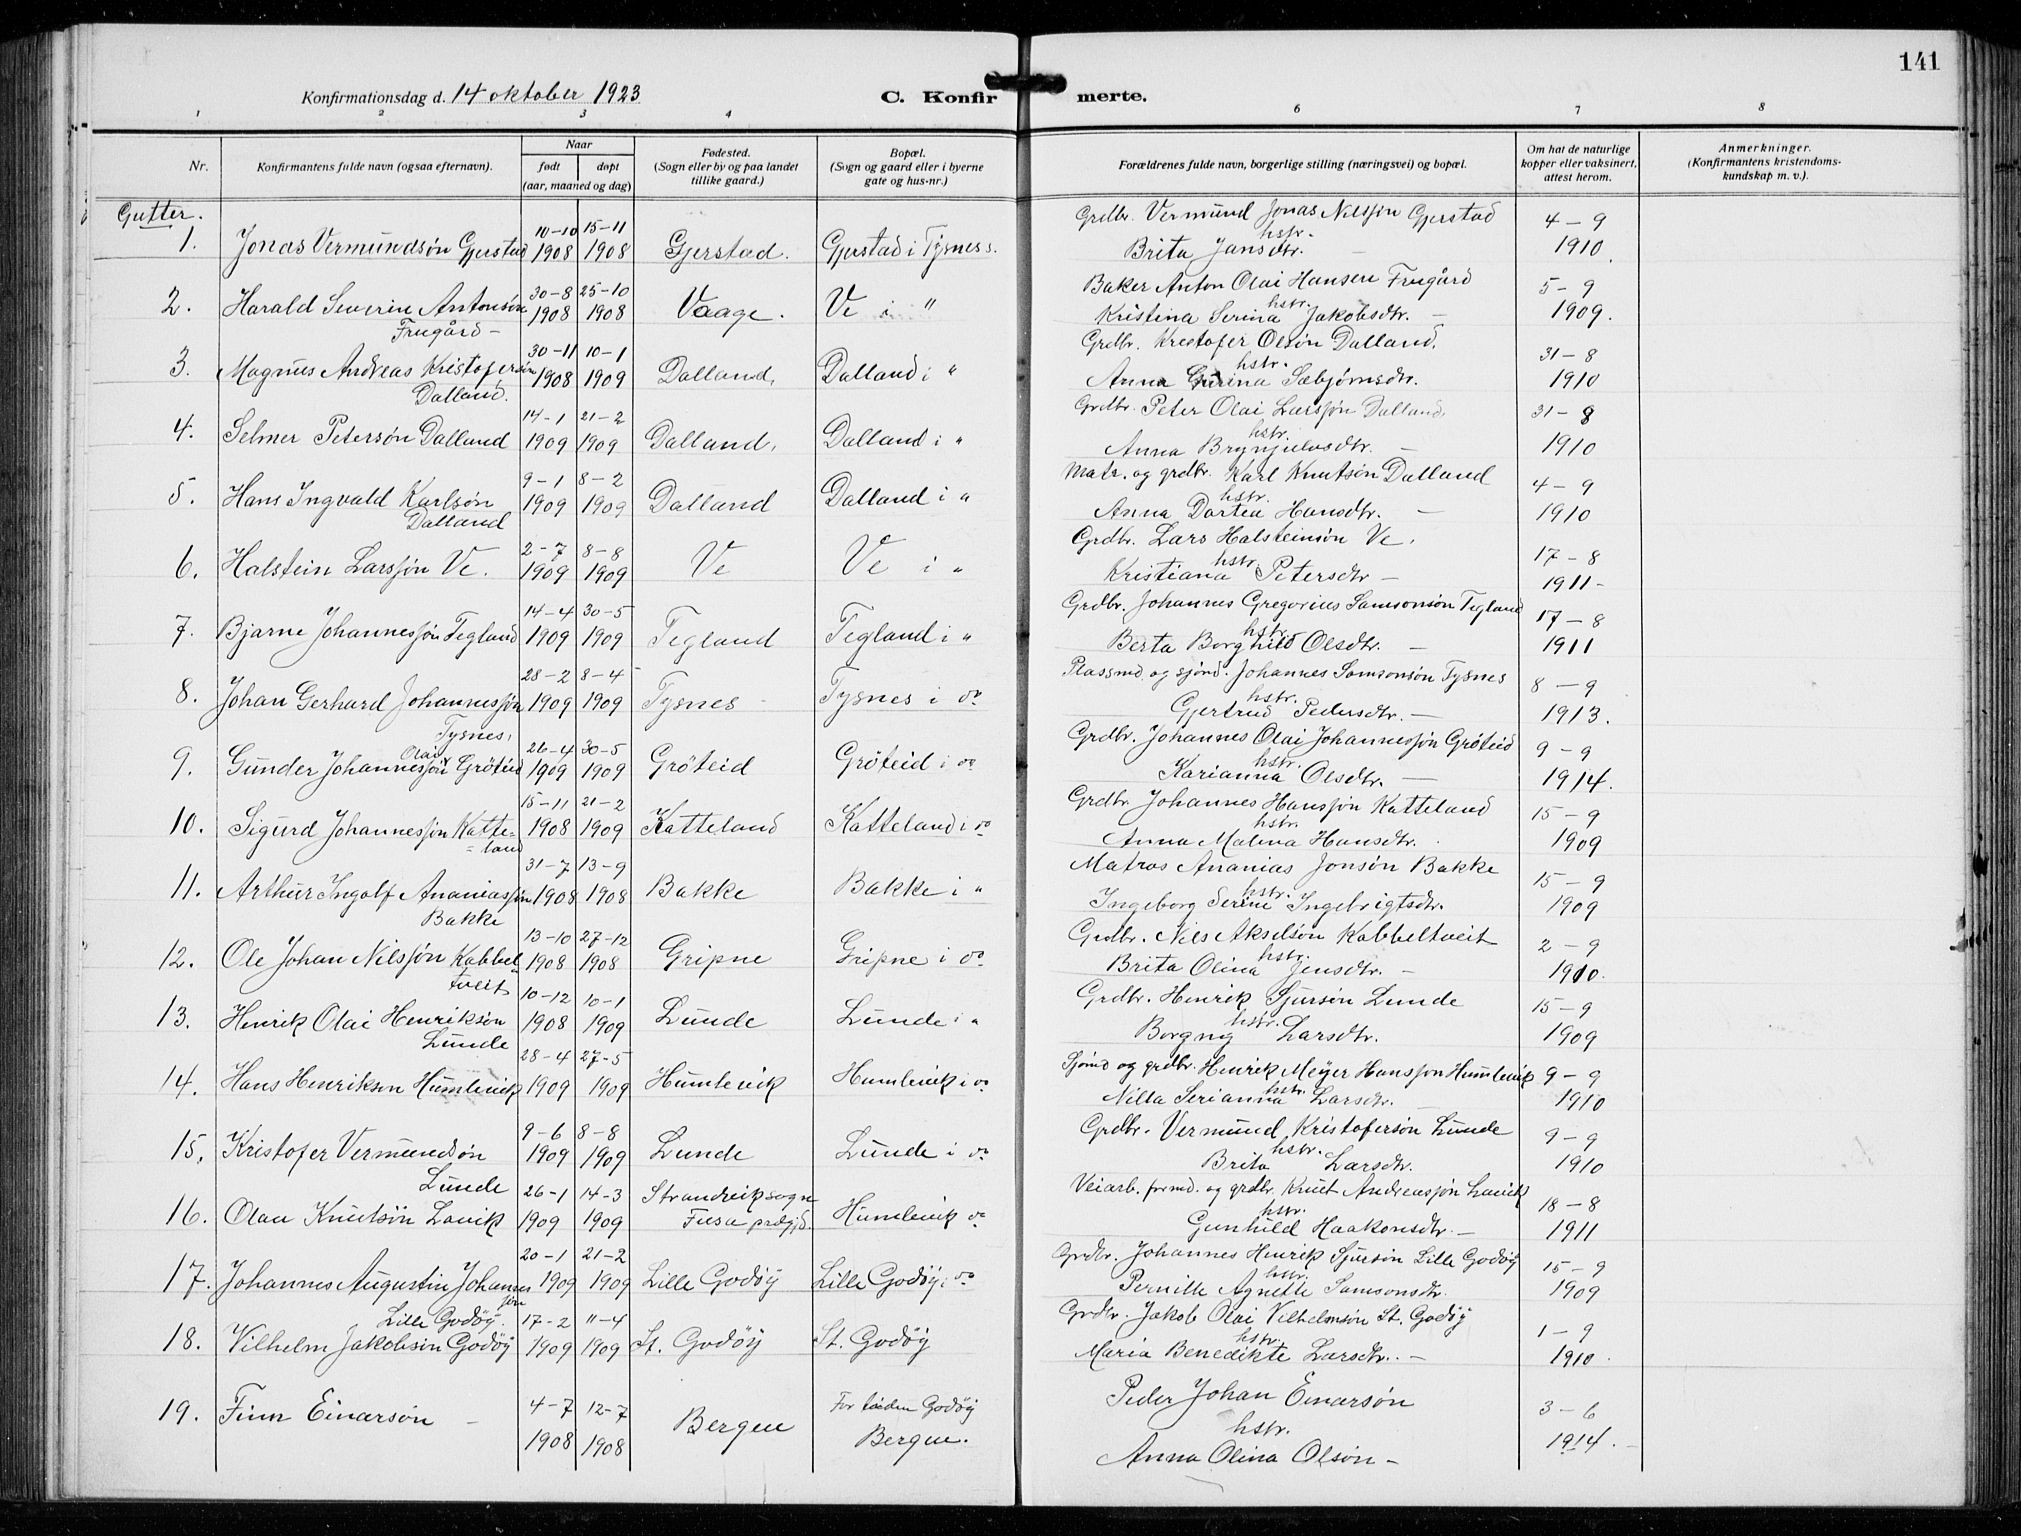 141
Konfirmationsdag d. 14 oktober 1923
C. Konfirmerte.
1 2 3 4 5 6 7 8
Nr. | Konfirmantens fulde navn (ogsaa efternavn). | Naar født døpt (aar, maaned og dag) | Fødested. (Sogn eller by og paa landet tillike gaard.) | Bopæl. (Sogn og gaard eller i byerne gate og hus-nr.) | Forældrenes fulde navn, borgerlige stilling (næringsvei) og bopæl. | Om hat de naturlige kopper eller vaksinert, attest herom. | Anmerkninger. (Konfirmantens kristendomskundskap m. v.).
Gutter.
1. Jonas Vermundsøn Gjerstad | 10-10 1908 | 15-11 1908 | Gjerstad. | Gjerstad i Tysnes s. | Grdbr. Vermund Jonas Nilssøn Gjerstad hstr. Brita Jansdtr. — | 4-9 1910.
2. Harald Severin Antonsøn Frugård — | 30-8 1908 | 25-10 1908 | Vaage. | Ve i " | Baker Anton Olai Hansen Frugård hstr. Kristina Serina Jakobsdtr. — | 5-9 1909.
3. Magnus Andreas Kristofersøn Dalland. | 30-11 1908 | 10-1 1909 | Dalland, | Dalland i " | Grdbr. Kristofer Olsøn Dalland. hstr. Anna Sæbjørnsdtr. | 31-8 1910
4. Selmer Petersøn Dalland | 14-1 1909 | 21-2 1909 | Dalland, | Dalland i " | Grdbr. Peter Olai Larssøn Dalland, hstr. Anna Brynjulvsdtr. — | 31-8 1910
5. Hans Ingvald Karlsøn Dalland | 9-1 1909 | 8-2 1909 | Dalland | Dalland i " | Matr. og grdbr. Karl Knutsøn Dalland hstr. Anna Dortea Hansdtr. — | 4-9 1910
6. Halstein Larssøn Ve. | 2-7 1909 | 8-8 1909 | Ve | Ve i " | Grdbr. Lars Halsteinsøn Ve. hstr. Kristiana Petersdtr — | 17-8 1911-
7. Bjarne Johannessøn Tegland | 14-4 1909 | 30-5 1909 | Tegland | Tegland i " | Grdbr. Johannes Gregorius Samsonsøn Tegland hstr. Berta Borghild Olsdtr. — | 17-8 1911
8. Johan Gerhard Johannessøn Tysnes. | 28-2 1909 | 8-4 1909 | Tysnes | Tysnes i do | Plassmd. og sjömd. Johannes Samsonsøn Tysnes hstr. Gjertrud Pedersdtr. — | 8-9 1913.
9. Gunder Olai Johannessøn Gröteid | 26-4 1909 | 30-5 1909 | Gröteid | Gröteid i do | Grdbr. Johannes Olai Johannessøn Gröteid hstr. Karianna Olsdtr. — | 9-9 1914.
10. Sigurd Johannessøn Katte=land | 15-11 1908 | 21-2 1909 | Katteland | Katteland i do | Grdbr. Johannes Hanssøn Katteland hstr. Anna Malena Hansdtr. | 15-9 1909
11. Arthur Ingolf Ananiassøn Bakke | 31-7 1908 | 13-9 1908 | Bakke | Bakke i " | Matros Ananias Jonsøn Bakke hstr. Ingeborg Serine Ingebrigtsdtr. | 15-9 1909
12. Ole Johan Nilssøn Kabbeltveit | 13-10 1908 | 27-12 1908 | Gripne | Gripne i do | Grdbr. Nils Akselsøn Kabbeltveit hstr. Brita Olina Jensdtr. — | 2-9 1910.
13. Henrik Olai Henriksøn Lunde | 10-12 1908 | 10-1 1909 | Lunde | Lunde i " | Grdbr. Henrik Sjursøn Lunde hstr. Borgny Larsdtr. | 15-9 1909
14. Hans Henriksøn Humlevik | 28-4 1909 | 27-5 1909 | Humlevik | Humlevik i do | Sjömd og grdbr. Henrik Meyer Hanssøn Humlevik hstr. Nilla Serianna Larsdtr. — | 9-9 1910
15. Kristofer Vermundsøn Lunde | 9-6 1909 | 8-8 1909 | Lunde | Lunde i do | Grdbr. Vermund Kristofersøn Lunde hstr. Brita Larsdtr. | 9-9 1910
16. Olav Knutsøn Lavik | 26-1 1909 | 14-3 1909 | Strandvik sogn Fusa prdgjd. | Humlevik do | Veiarb. formd. og grdbr. Knut Andreassøn Lavik hstr. Gunhild Haakonsdtr. — | 18-8 1911
17. Johannes Augustin Johannessøn Lille Godöy. | 20-1 1909 | 21-2 1909 | Lille Godöy | Lille Godöy i do | Grdbr. Johannes Henrik Sjursøn Lille Godöy hstr. Pernille Agnette Samsonsdtr. | 15-9 1909
18. Vilhelm Jakobsøn Godöy | 17-2 1909 | 11-4 1909 | St. Godöy | St. Godöy | Grdbr. Jakob Olai Vilhelmsøn St. Godöy hstr. Maria Benedikte Larsdtr. — | 1-9 1910.
19. Finn Einarsøn — | 4-7 1908 | 12-7 1908 | Bergen | For tiden Godöy Bergen. | Peder Johan Einarsøn hstr. Anna Olina Olsøn — | 3-6 1914.